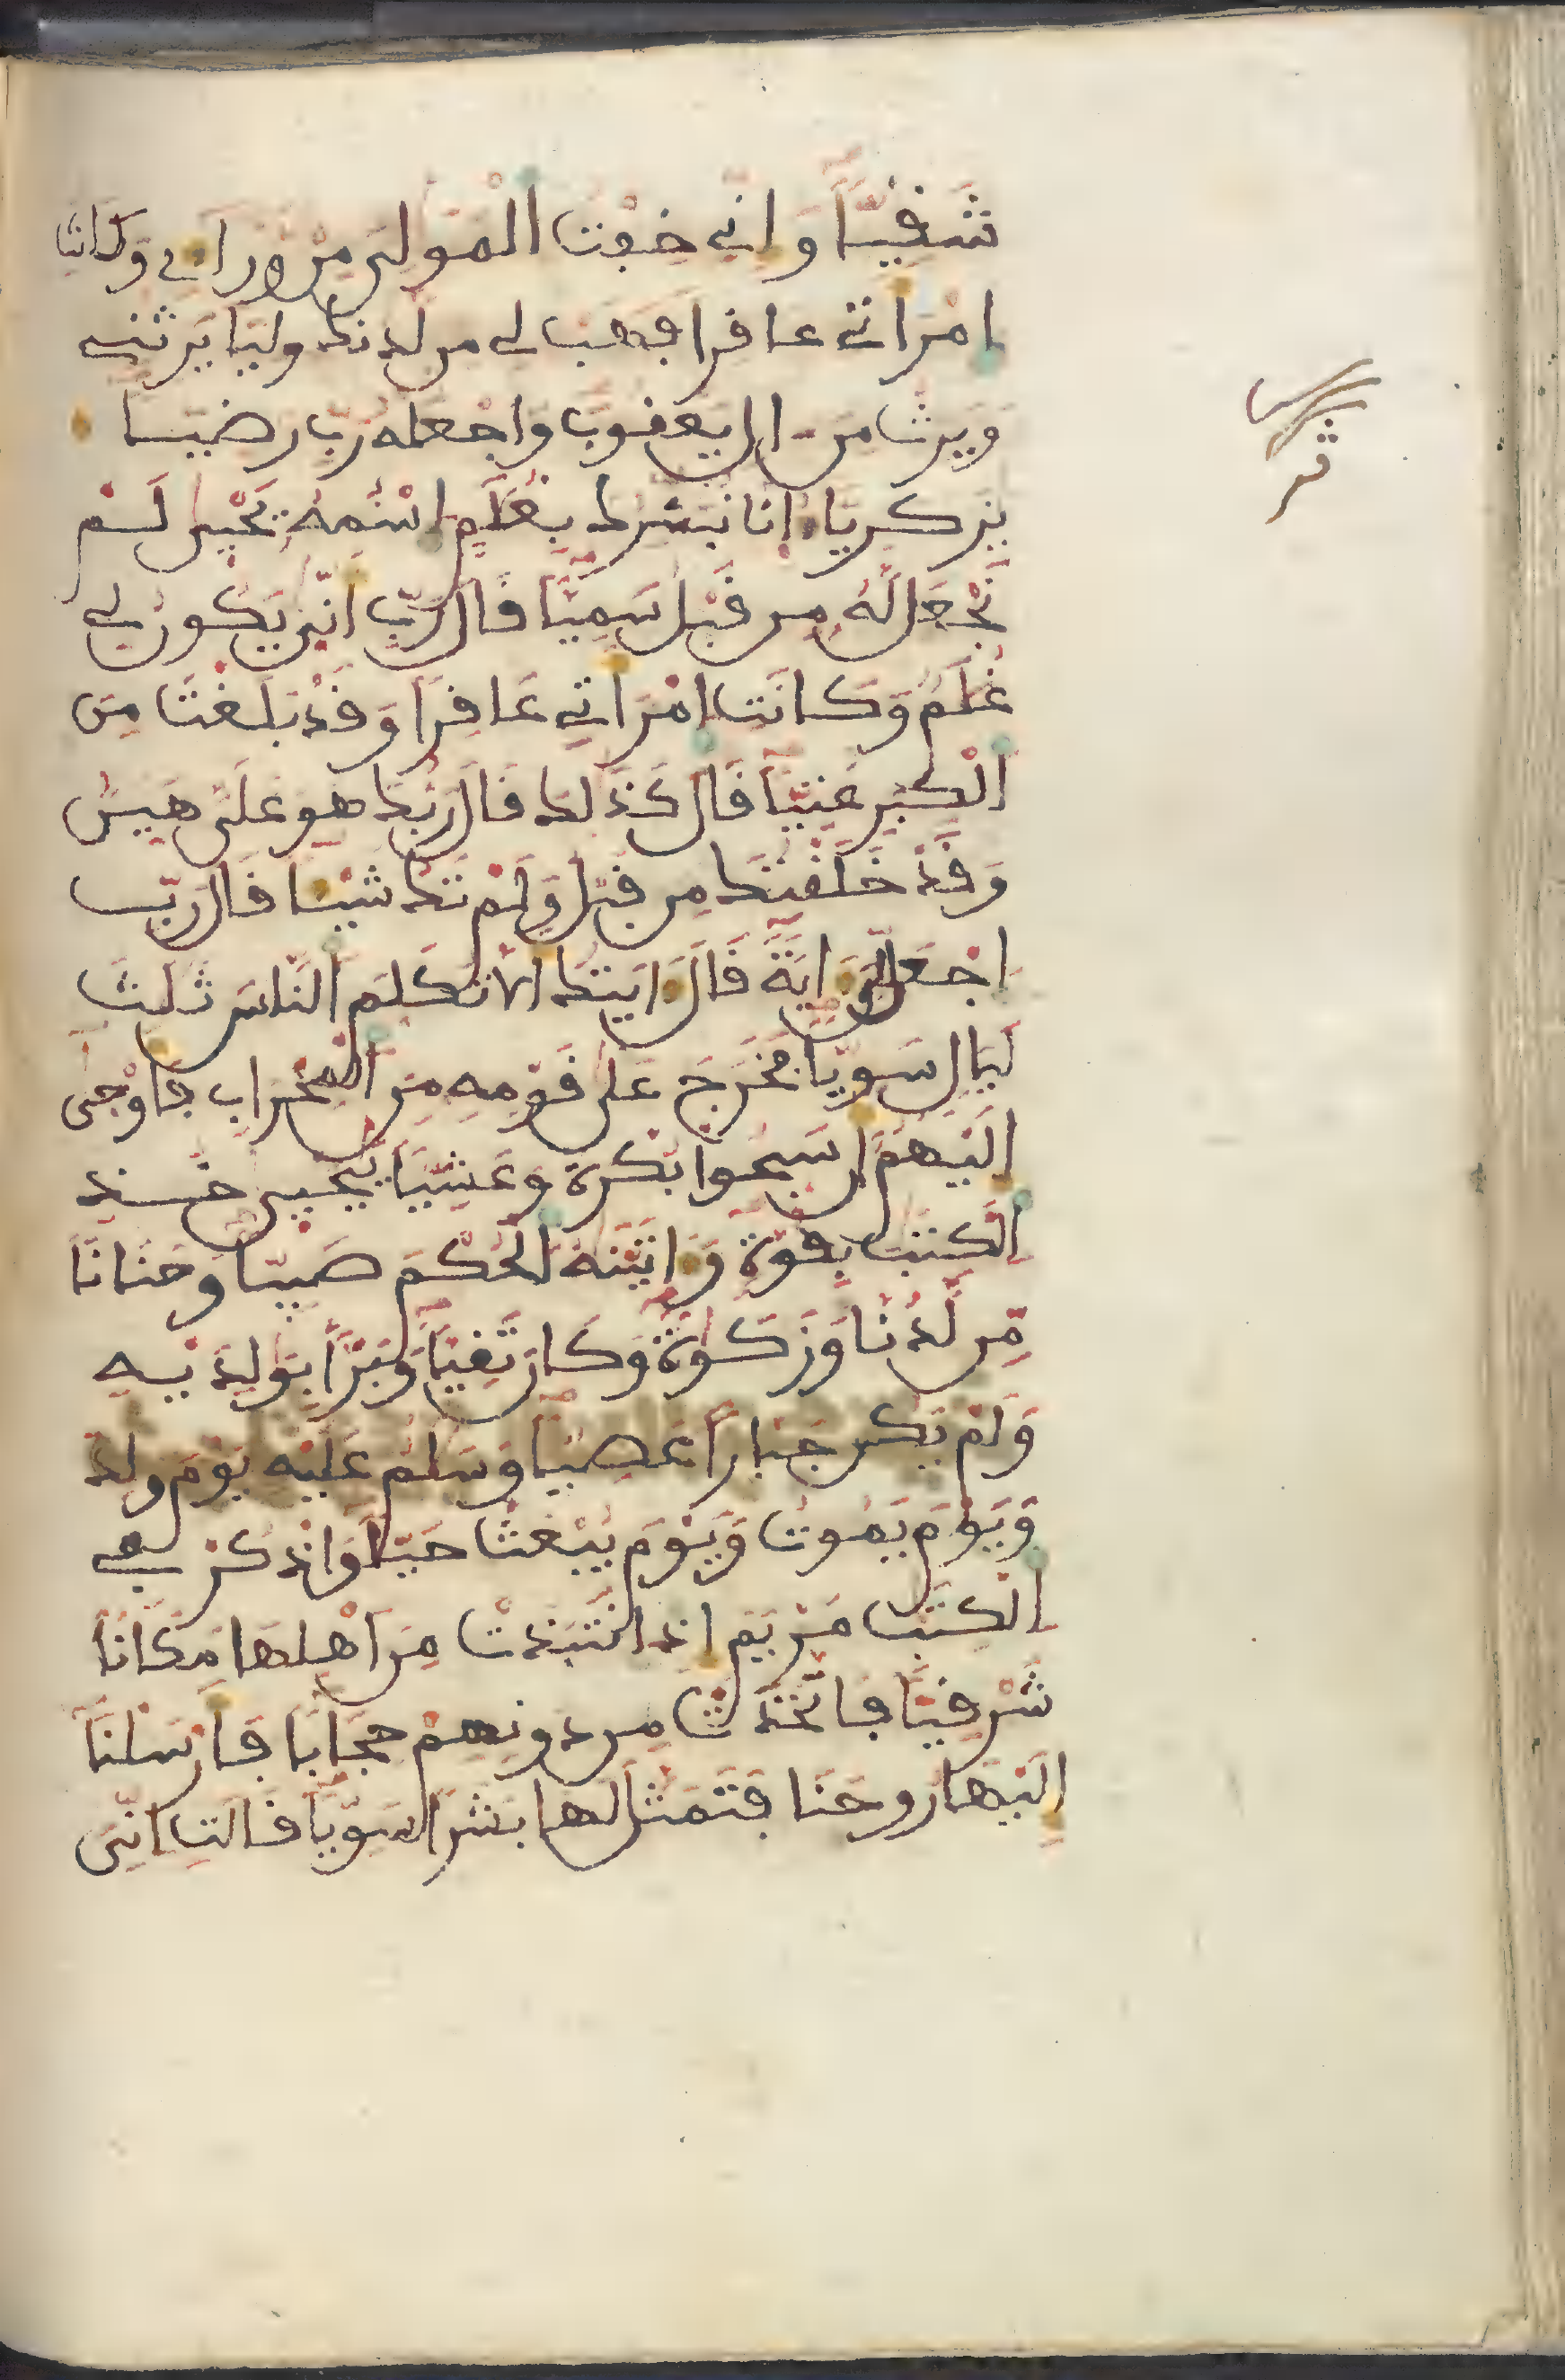 شَفِيّاً وَانِّے خِفْتُ الْمَوَلِىَ مِنْ وَرَاءِے وَكَانَتِ
امْرَاتِے عَافِراً فَهَبْ لِے مِن لَّدُنكَ وَلِيّاً يَرِثُنِے
وَيَرِثُ مِنَ الِ يَعْفُوبَ وَاجْعَلْهُ رَبِّ رَضِيّاً
يَزَكَرِيَّاءُ انَّا نُبَشِّرُكَ بِغُلَمٍ اسْمُهُ يَحْيى لَمْ
نَجْعَل لَّهُ مِن فَبْلُ سَمِيّاً فَالَ رَبِّ أَنّى يَكُونُ لِے
غُلَمٌ وَكَانَتِ امْرَاتِے عَافِراً وَفَدْ بَلَغْتُ مِنَ
الْكِبَرِ عُتِيّاً فَالَ كَذَلِكَ فَالَ رَبُّكَ هُوَ عَلَىَّ هَيِّنٌ
وَفَدْ خَلَفْتُكَ مِن فَبْلُ وَلَمْ تَكُ شَيْئاً فَالَ رَبِّ
اجْعَل لِّىَ ايَةً فَالَ ايَتُكَ أَلاَّ تُكَلِّمَ النَّاسَ ثَلَثَ
لَيَالٍ سَوِيّاً فَخَرَجَ عَلى فَوْمِهِ مِنَ الْمِحْرَابِ فَأَوْحى
إِلَيْهِمُ أَن سَبِّحُوا بُكْرَةً وَعَشِيّاً يَيَحْيى خُذِ
الْكِتَبَ بِفُوَّةٍ وَاتَيْنَهُ الْحُكْمَ صَبِيّاً وَحَنَاناً
مِّن لَّدُنَّا وَزَكَوةً وَكَانَ تَفِيّاً وَبَرّاً بِوَلِدَيْهِ
وَلَمْ يَكُن جَبَّاراً عَصِيّاً وَسَلَمٌ عَلَيْهِ يَوْمَ وُلِدَ
وَيَوْمَ يَمُوتُ وَيَوْمَ يُبْعَثُ حَيّاً وَاذْكُرْ فِے
الْكِتَبِ مَرْيَمَ إِذِ انتَبَذَتْ مِنَ اهْلِهَا مَكَاناً
شَرْفِيّاً فَاتَّخَذَتْ مِن دُونِهِمْ حِجَاباً فَأَرْسَلْنَا
إِلَيْهَا رُوحَنَا فَتَمَثَّلَ لَهَا بَشَراً سَوِيّاً فَالَتِ انِّىَ